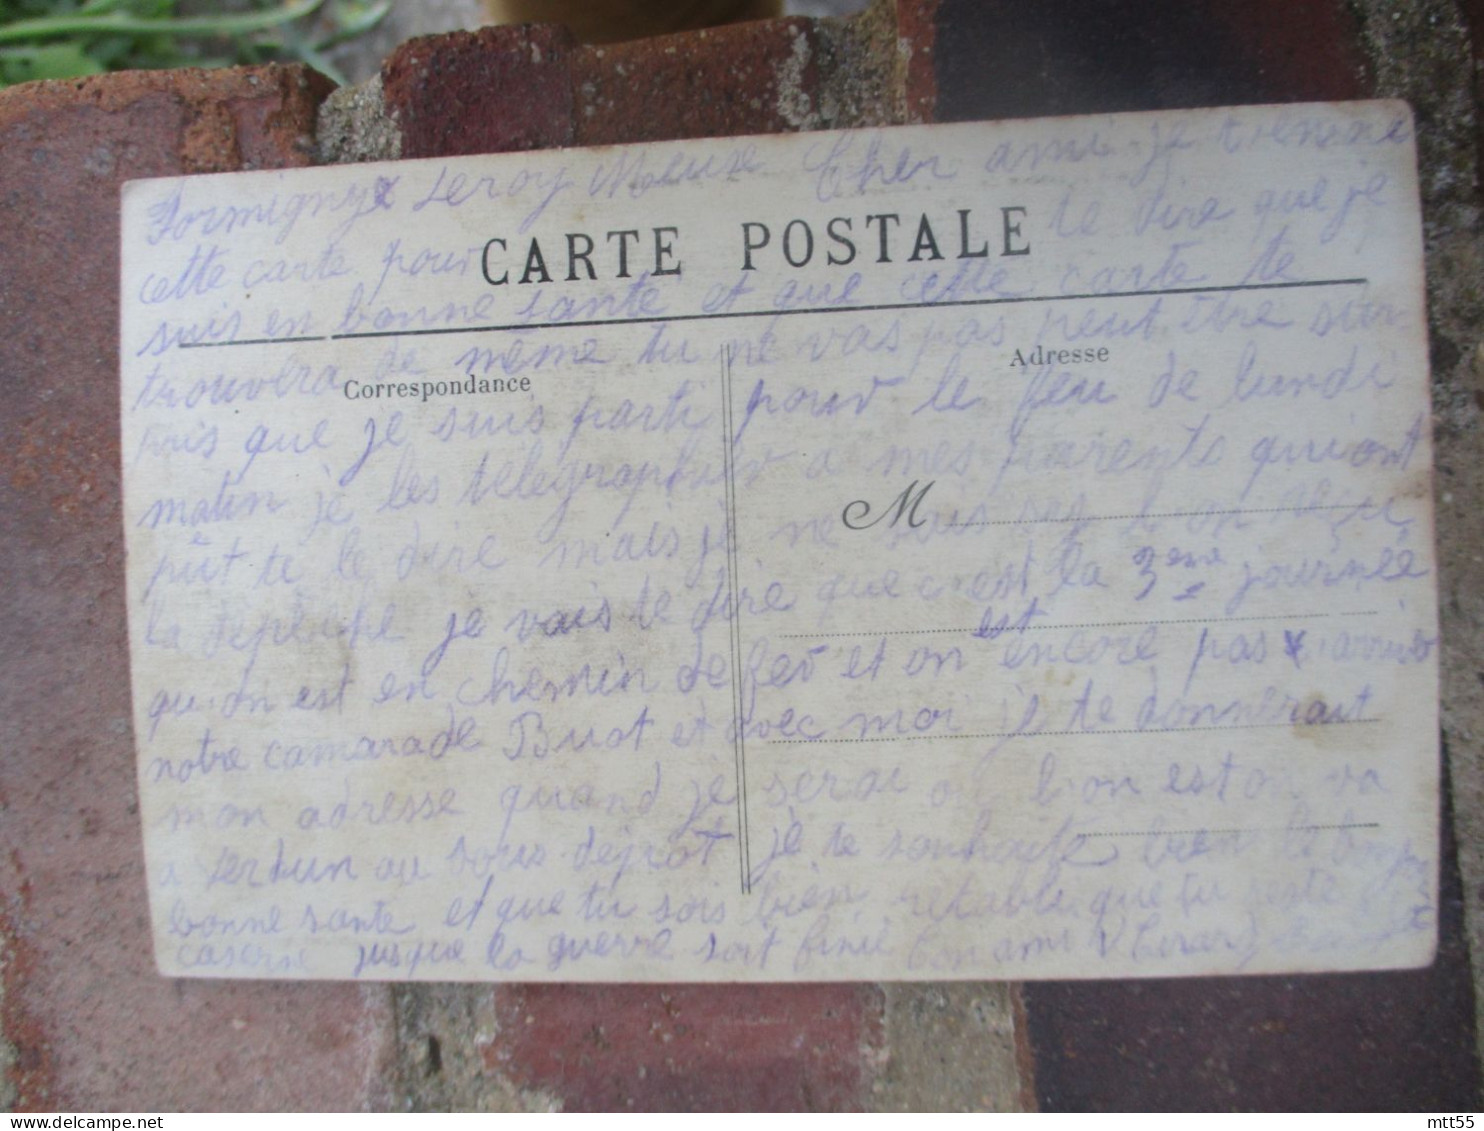 Leroy Meuse Cher ami je t'envoie
cette carte pour te dire que je
CARTE POSTALE
suis en bonne sante et que cette carte te
trouvera de même tu ne vas pas peut être
Correspondance
Adresse
que je suis parti pour le feu de lundi
matin je les télégraphier a mes parents qui ont
M
pût te le dire mais je ne sais pas
la je vais te dire que c'est la 3eme journée
qu'on est en chemin de fer et on est encore pas arriver
notre camarade Buot et avec moi je te donnerait
mon adresse quand je serai ou l'on est on va
a Verdun ou sous dépot je te souhaite bien le bonjour
bonne sante et que tu sois bien retabli que tu reste
caserne jusque la guerre soit finie ton ami
mtt55